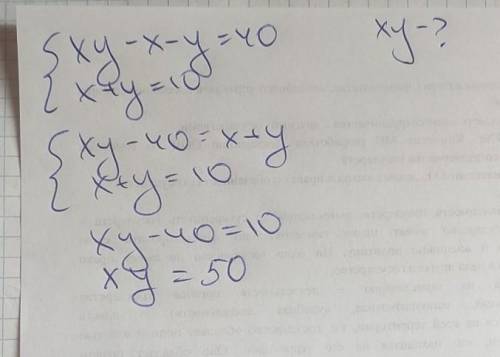 xy-x-y=40
x+y=10
xy-?
xy-40=x+y
x+y=10
xy-40=10
xy=50